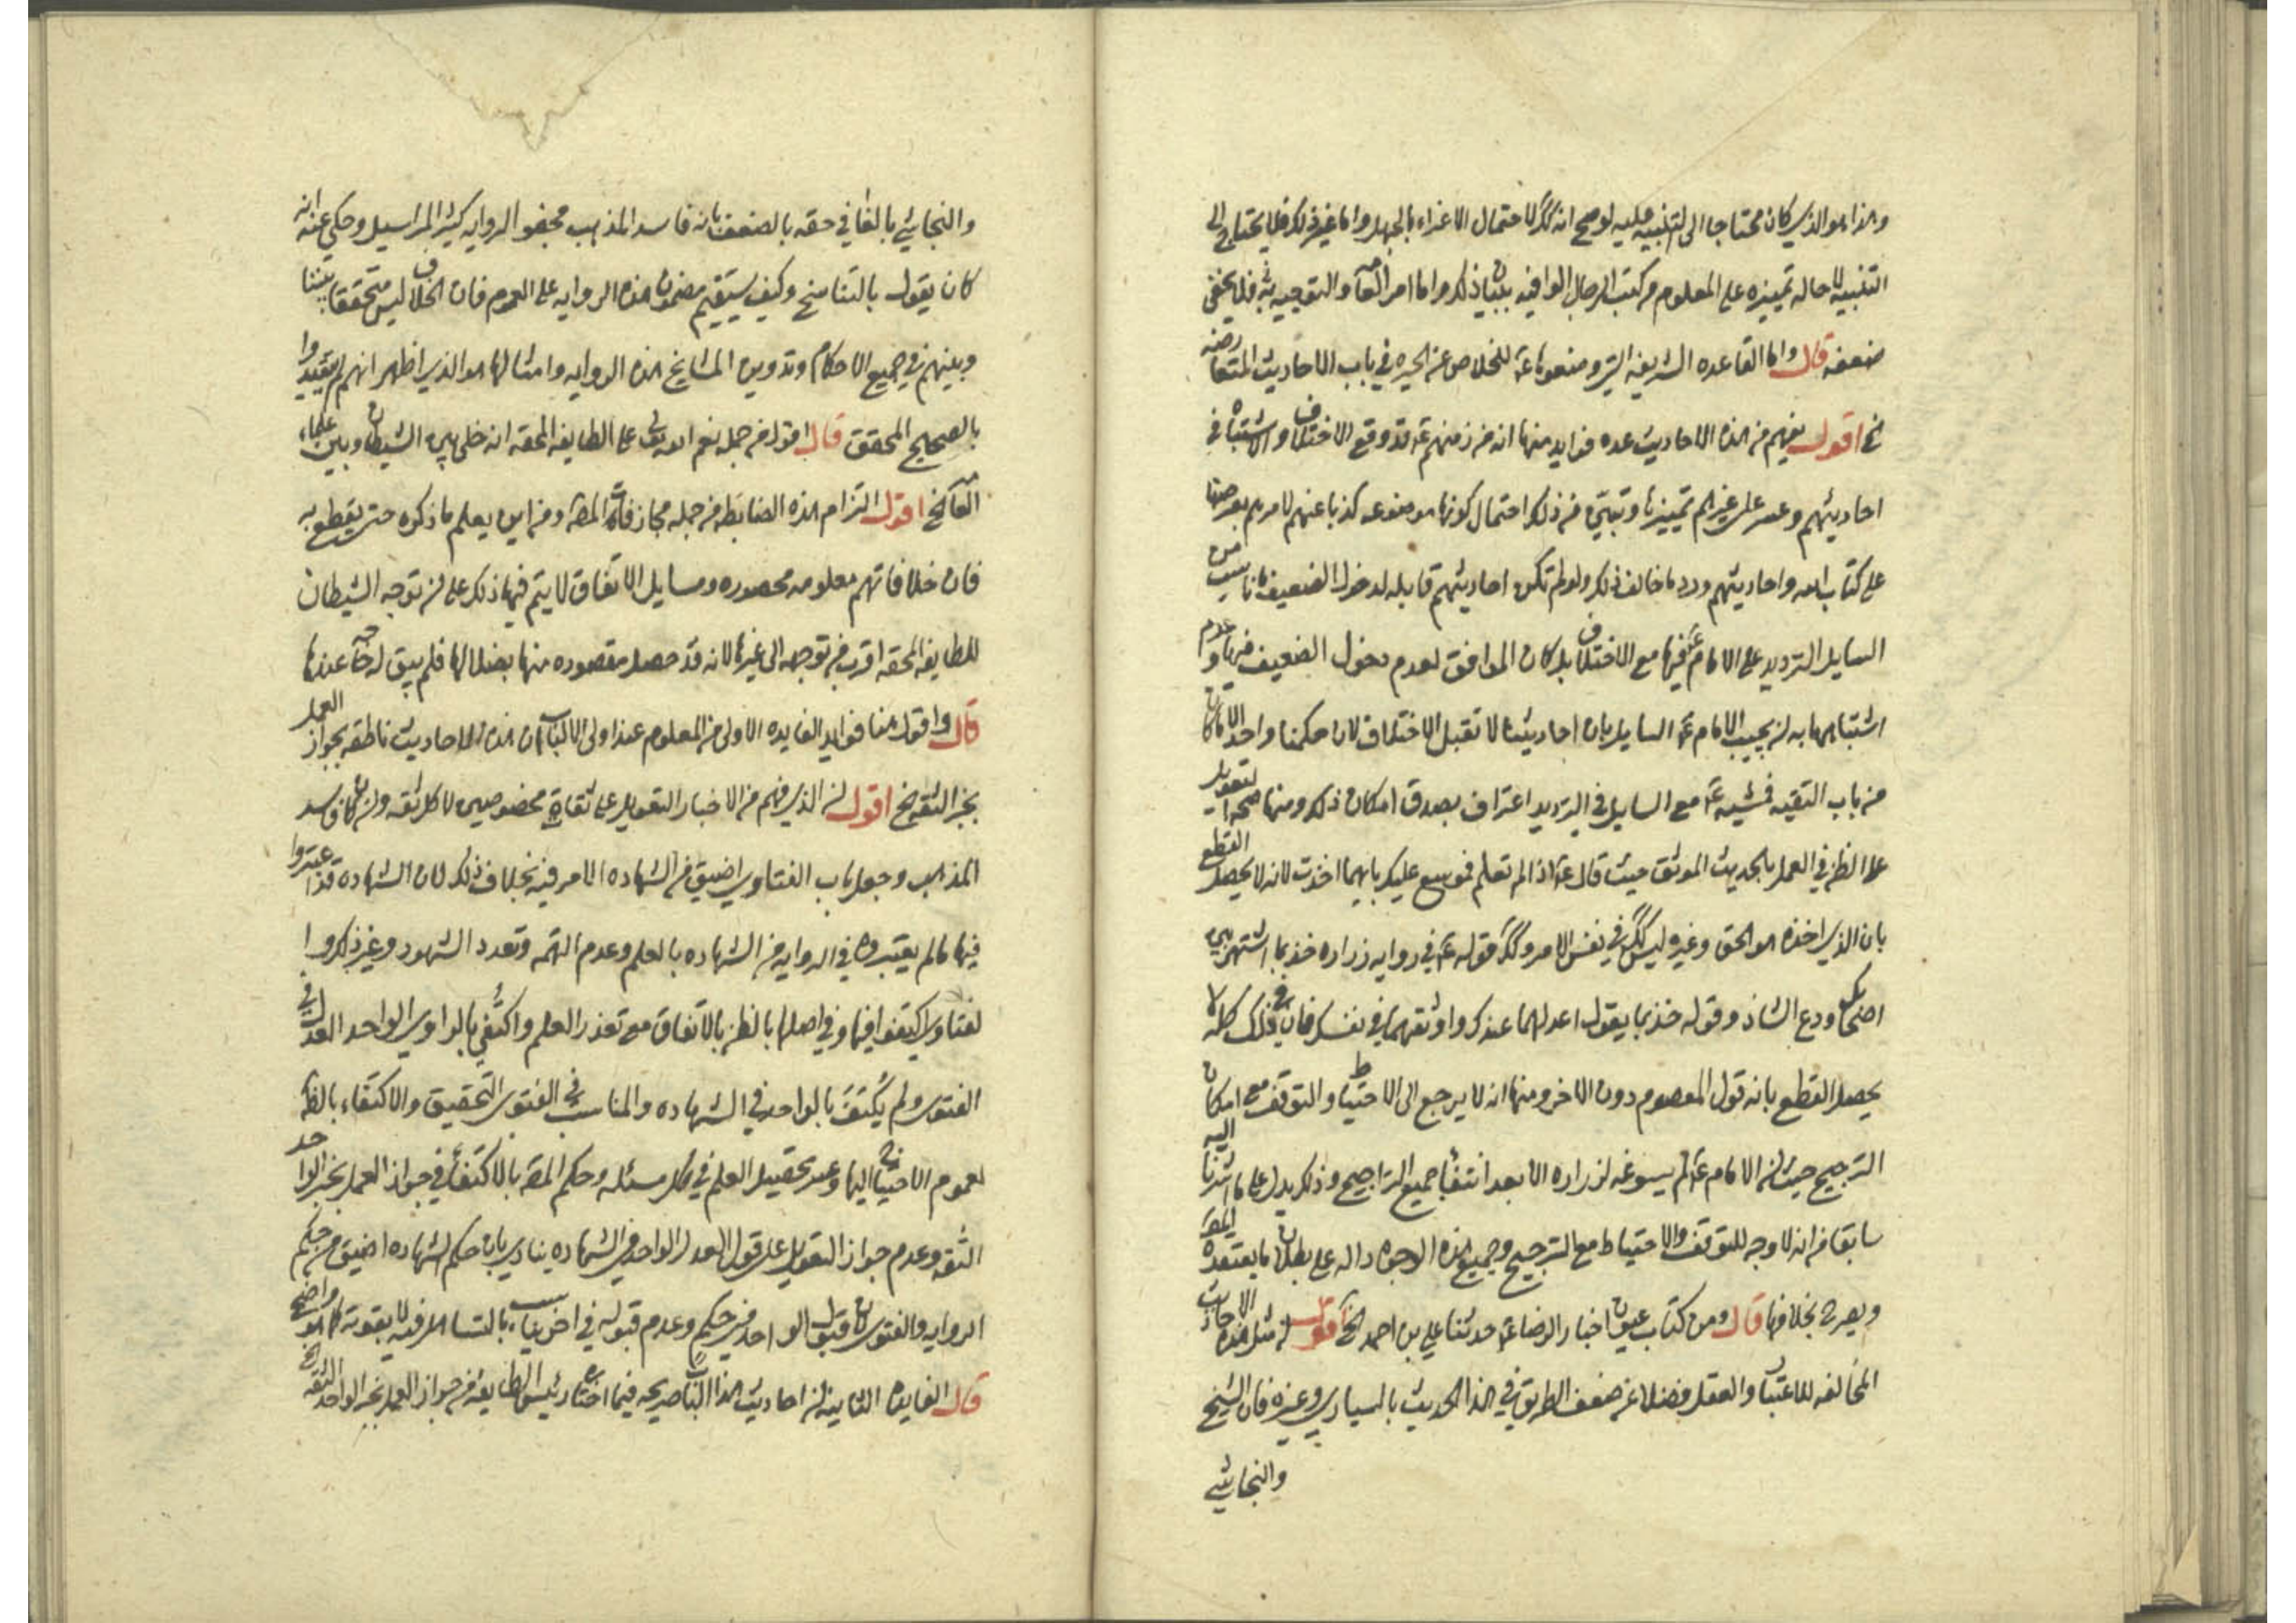 وهذا هو الذي كان محتاجا الى التنبيه عليه لو صح انه كك لاحتمال الاغراء بالجهل واما غير ذلك فلا يحتاج الى
التنبيه لاحاله تميزه على المعلوم من كتب الرجال الوافيه ببيان ذلك واما امر العامه والتوجيه به فلا يخفى
ضعفه قال واما القاعده الشريفه التي وضعوها ع للخلاص عن الحيره في باب الاحاديث المتعارضه
الخ اقول يفهم من هذه الاحاديث عده فوايد منها انه من زمنهم ع قد وقع الاختلاف والاشتباه في
احاديثهم وعسر على غيرهم تميزها وتبين من ذلك احتمال كونها موضوعه كذبا عنهم لامرهم بعرضها
على كتاب الله واحاديثهم ورد ما خالف ذلك ولو لم تكن احاديثهم قابله لدخول الضعيف ما ناسب من
السايل الترديد على الامام ع فيها مع الاختلاف بل كان الموافق لعدم دخول الضعيف فيها وعدم
اشتباهها به ان يجيب الامام ع السايل بان احاديثنا لا تقبل الاختلاف لان حكمنا واحد الا ما كان
من باب التقيه فمشيه ع مع السايل في الترديد اعتراف بصدق امكان ذلك ومنها صحه التعويل
على الظن في العمل بالحديث الموثق حيث قال ع اذا لم تعلم فموسع عليك بايهما اخذت لانه لا يحصل القطع
بان الذي اخذه هو الحق وغيره ليس كك في نفس الامر وكك قوله ع في روايه زراره خذ بما اشتهر بين
اصحابك ودع الشاذ وقوله خذ بما يقول اعدلهما عندك واوثقهما في نفسك فان في ذلك كله لا
يحصل القطع بانه قول المعصوم دون الاخر ومنها انه لا يرجع الى الاحتياط والتوقف مع امكان
الترجيح حيث ان الامام ع لم يسوغه لزراره الا بعد انتفاء جميع التراجيح وذلك يدل على ما اشرنا اليه
سابقا من انه لا وجه للتوقف والاحتياط مع الترجيح وجميع هذه الوجوه داله على بطلان ما يعتقده المص
ويصرح بخلافها قال ومن كتاب عيون اخبار الرضا ع حدثنا علي بن احمد الخ اقول ان مثل هذه الاحاديث
المخالفه للاعتبار والعقل فضلا عن ضعف الطريق في هذا الحديث بالسياري وغيره فان الشيخ
والنجاشي
والنجاشي بالغا في حقه بالضعف بانه فاسد المذهب مجفو الروايه كثير المراسيل وحكي عنه انه
كان يقول بالتناسخ وكيف يستقيم مضمون هذه الروايه على العموم فان الخلاف ليس متحققا بيننا
وبينهم في جميع الاحكام وتدوين المشايخ هذه الروايه وامثالها هو الذي اظهر انهم لم يتقيدوا
بالصحيح المحقق قال اقول من جمله نعم الله تعالى على الطايفه المحقه انه خلى بين الشيطان وبين علماء
العامه الخ اقول التزام هذه الضابطه من جمله مجازفات المص ومن اين يعلم ما ذكره حتى يقطع به
فان خلافاتهم معلومه محصوره ومسايل الاتفاق لا يتم فيها ذلك على ان توجه الشيطان
للطايفه المحقه اقرب من توجهه الى غيرها لانه قد حصل مقصوده منها بضلالها فلم يبق له حاجه عندها
قال واقول هنا فوايد الفايده الاولى من المعلوم عند اولى الالباب ان هذه الاحاديث ناطقه بجواز العمل
بخبر الثقه الخ اقول ان الذي فهم من الاخبار التعويل على ثقات مخصوصين لا كل ثقه وان كان فاسد
المذهب وجعل باب الفتاوي اضيق من الشهاده الامر فيه بخلاف ذلك لان الشهاده قد اعتبروا
فيها ما لم يعتبروه في الروايه من الشهاده بالعلم وعدم التهمه وتعدد الشهود وغير ذلك وا
لفتاوي اكتفوا فيها وفي اصلها بالظن بالاتفاق مع تعذر العلم واكتفي بالراوي الواحد العدل في
الفتوى ولم يُكتفَ بالواحد في الشهاده والمناسب في الفتوى التحقيق والاكتفاء بالظن
لعموم الاحتياج اليها وعسر تحصيل العلم في كل مسئله وحكم المص بالاكتفاء في جواز العمل بخبر الواحد
الثقه وعدم جواز التعويل على قول العدل الواحد في الشهاده ينادي بان حكم الشهاده اضيق من حكم
الروايه والفتوى فان قبول الواحد في حكم وعدم قبوله في اخر يناسب بالتساهل فيه لا بقوته كما هو واضح
قال الفايده الثانيه ان احاديث هذا الباب صريحه فيما اختاره رئيس الطايفه من جواز العمل بخبر الواحد الثقه الخ